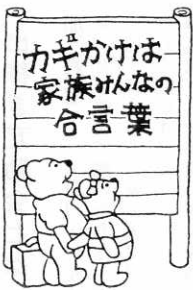 カギかけは
家族みんなの
合言葉